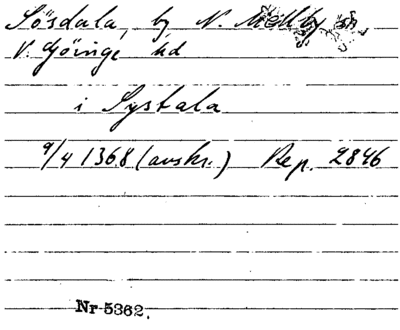 Sösdala, by N. Mellby sn
V. Göinge hd
i Systala
9/4 1368 (avskr.) Rep. 2846
Nr 5362.